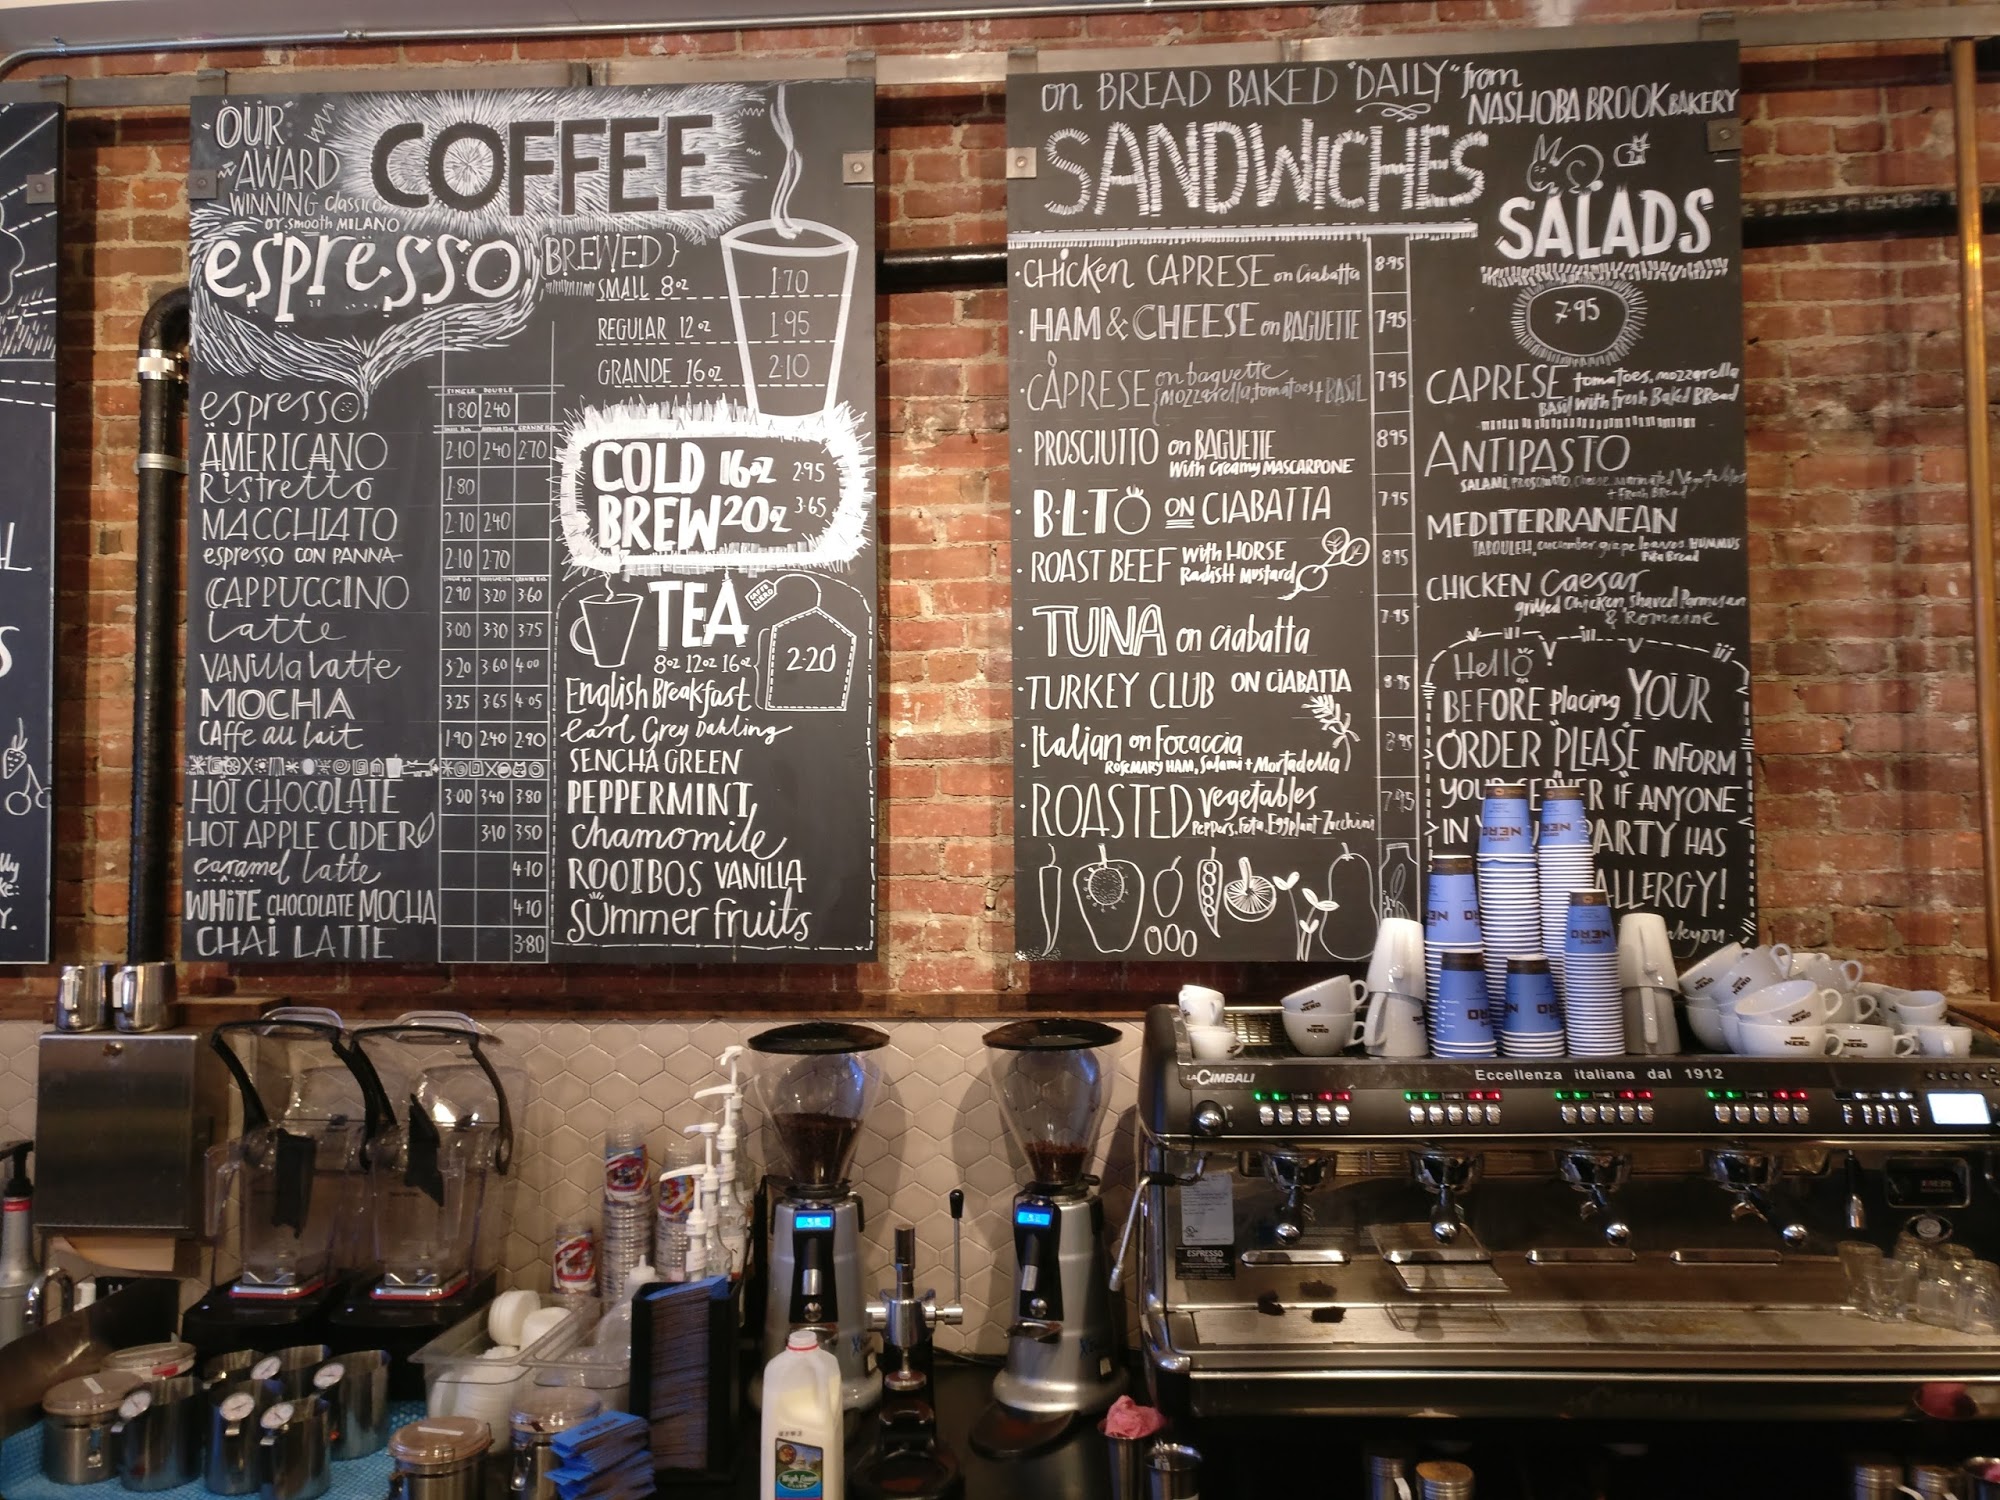 "OUR"
AWARD
WINNING classico
or smooth MILANO
COFFEE
espresso
{BREWED}
SMALL 8oz 1.70
REGULAR 12oz 1.95
GRANDE 16oz 2.10
SINGLE DOUBLE
espresso 1.80 2.40
AMERICANO 2.10 2.40 2.70
Ristretto 1.80
MACCHIATO 2.10 2.40
espresso CON PANNA 2.10 2.70
CAPPUCCINO 2.90 3.20 3.60
Latte 3.00 3.30 3.75
VANilla latte 3.20 3.60 4.00
MOCHA 3.25 3.65 4.05
CAffe au lait 1.90 2.40 2.90
HOT CHOCOLATE 3.00 3.40 3.80
HOT APPLE CIDER 3.10 3.50
caramel latte 4.10
WHITE CHOCOLATE MOCHA 4.10
CHAI LATTE 3.80
COLD BREW
16oz 2.95
20oz 3.65
TEA
CAFFE NERO
8oz 12oz 16oz 2.20
English Breakfast
earl Grey Dahling
SENCHA GREEN
PEPPERMINT
chamomile
ROOIBOS VANILLA
summer fruits
on BREAD BAKED "DAILY" from
NASHOBA BROOK BAKERY
SANDWICHES
CHicken CAPRESE on Ciabatta 8.95
HAM & CHEESE on BAGUETTE 7.95
CAPRESE on baguette 7.95
mozzarella, tomatoes + BASIL
PROSCIUTTO on BAGUETTE 8.95
With Creamy MASCARPONE
B.L.T ON CIABATTA 7.95
ROAST BEEF with HORSE 8.95
Radish Mustard
TUNA on ciabatta 7.95
TURKEY CLUB ON CIABATTA 8.95
Italian on Focaccia 8.95
ROSEMARY HAM, Salami + Mortadella
ROASTED vegetables 7.95
Peppers, Feta, Eggplant Zucchini
SALADS
7.95
CAPRESE tomatoes, mozzarella
BASIL with fresh BAKed BRead
ANTIPASTO
SALAMI, PROSCIUTTO, cheese, marinated Vegetables
+ FResh BRead
MEDITERRANEAN
TABOULEH, cucumber, grape leaves, HUMMUS
Pita Bread
CHICKEN Caesar
grilled Chicken, Shaved Parmesan
& Romaine
Hello
BEFORE placing YOUR
ORDER "PLEASE" INFORM
YOUR SERVER IF ANYONE
IN PARTY HAS
ALLERGY!
CAFFÈ NERO
LACIMBALI
Eccellenza italiana dal 1912
ESPRESSO